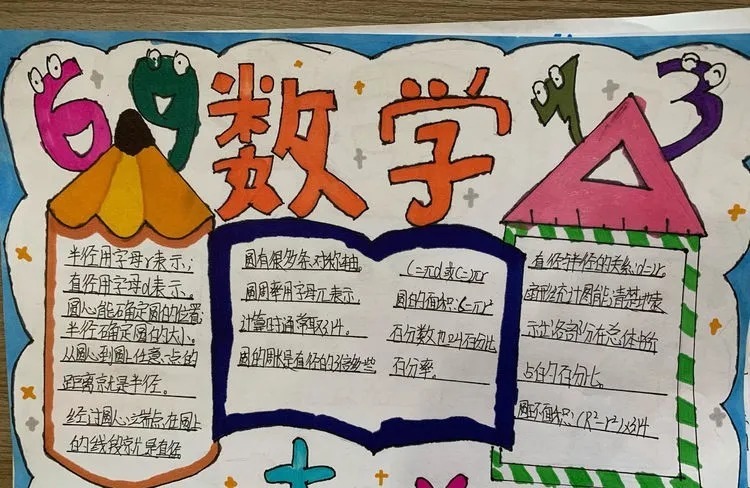 6 9 数学 1 3
半径用字母r表示;
直径用字母d表示。
圆心能确定圆的位置;
半径确定圆的大小。
从圆心到圆上任意一点的
距离就是半径。
经过圆心立端点在圆上
的线段就是直径
圆有很多条对称轴。
圆周率用字母π表示
计算时通常取3.14。
圆的周长是直径的3倍多些
C=πd或C=πr
圆的面积:S=πr²
百分数也叫百分比
百分率。
直径与半径的关系:d=2r。
扇形统计图能清楚地表
示出各部分在总体中所
占的百分比。
圆环面积:(R²-r²)×3.14